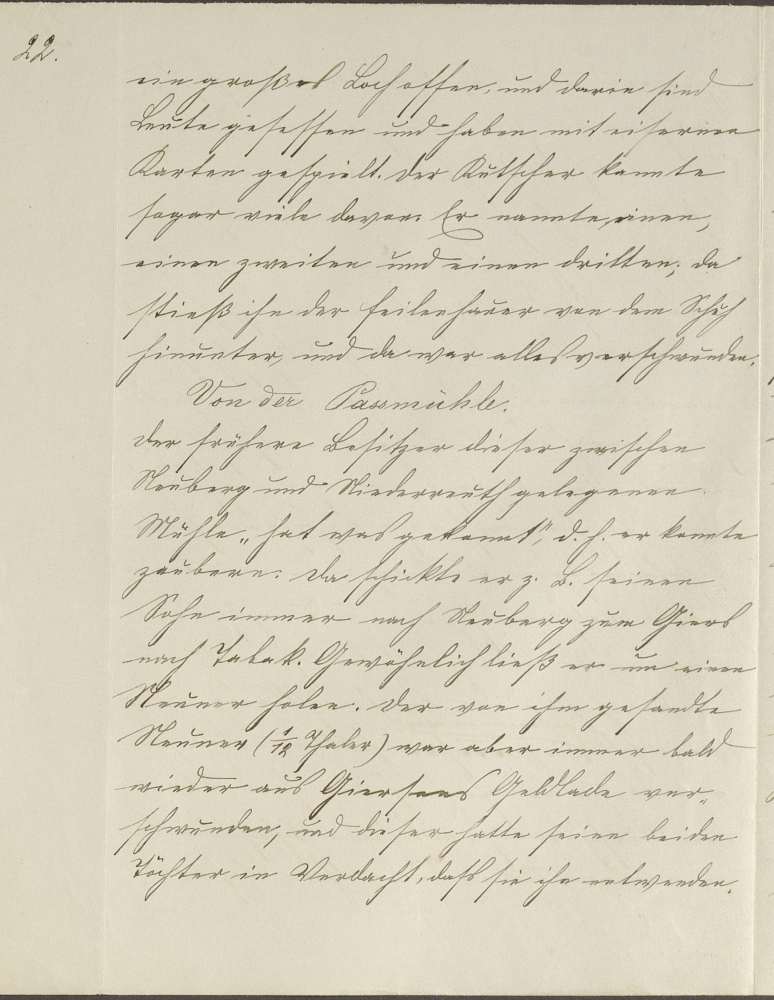 22.
ein großes Loch offen, und darin sind
Leute gesessen und haben mit eisernen
Karten gespielt. Der Kutscher kannte
sogar viele davon. Er nannte einen,
einen zweiten und einen dritten; da
stieß ihn der Feilenhauer von dem
hinunter, und da war alles verschwunden.
Von der Passmühle.
Der frühere Besitzer dieser zwischen
Neuberg und Niederreuth gelegenen
Mühle „hat was gekonnt", d. h. er konnte
zaubern. Da schickte er z. B. seinen
Sohn immer nach Neuberg zum Giers
nach Tabak. Gewöhnlich ließ er um einen
Neuner holen. Der von ihm gesandte
Neuner (1/12 Thaler) war aber immer bald
wieder aus Giersens Geldlade ver-
schwunden, und dieser hatte seine beiden
Töchter in Verdacht, daß sie ihn entwenden.